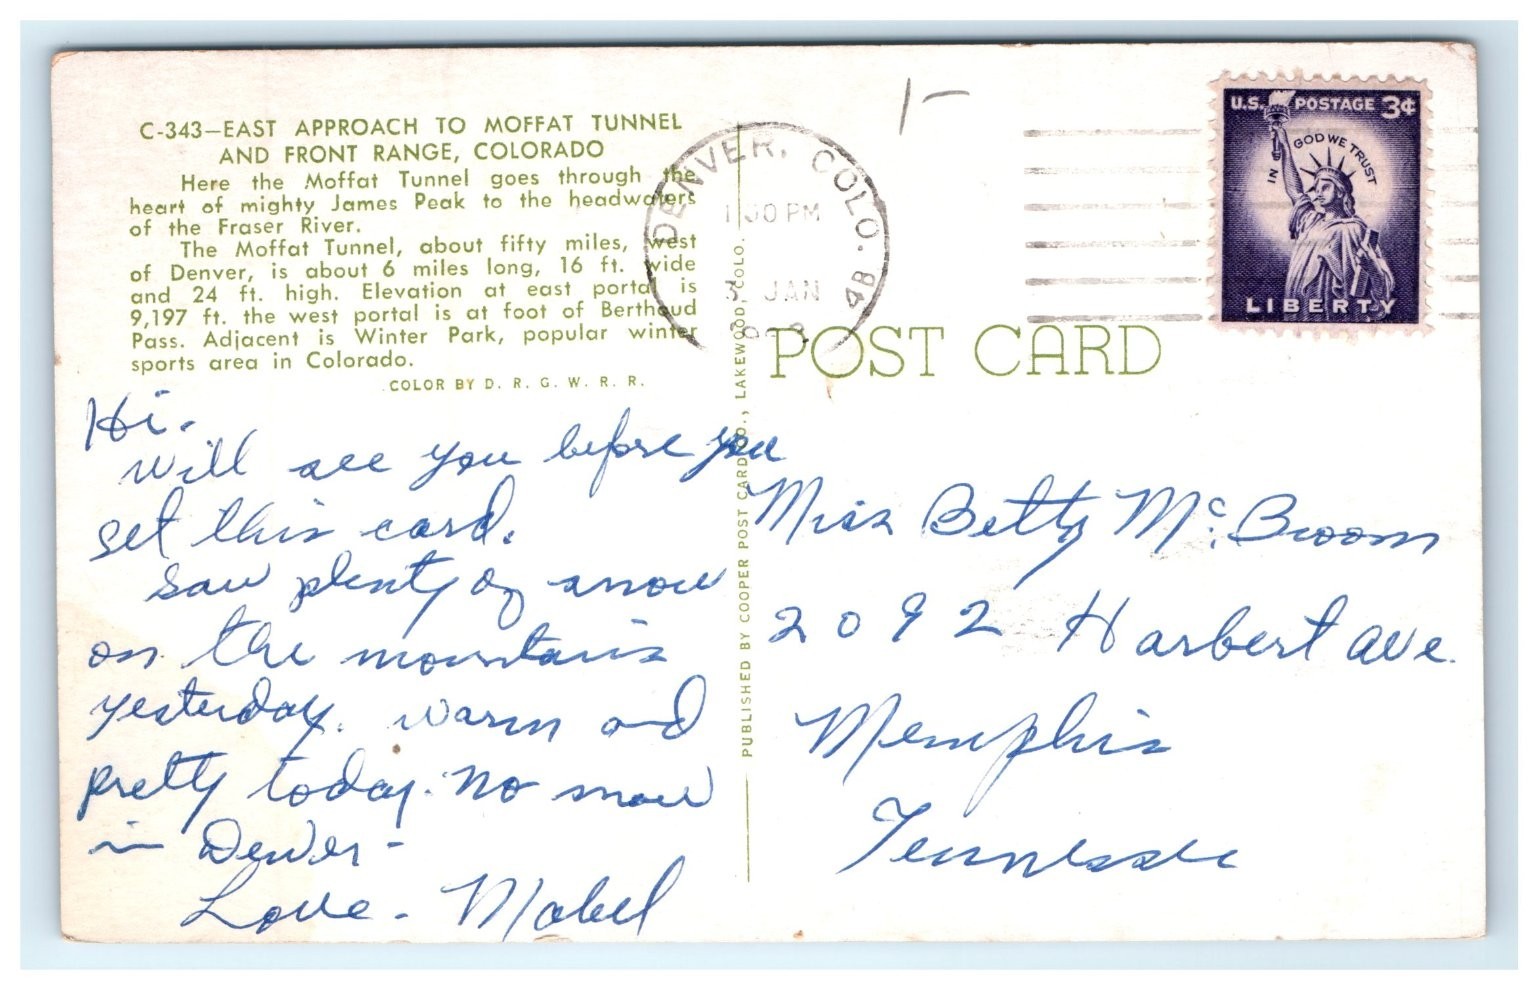 C-343—EAST APPROACH TO MOFFAT TUNNEL
AND FRONT RANGE, COLORADO
Here the Moffat Tunnel goes through the
heart of mighty James Peak to the headwaters
of the Fraser River.
The Moffat Tunnel, about fifty miles, west
of Denver, is about 6 miles long, 16 ft. wide
and 24 ft. high. Elevation at east portal is
9,197 ft. the west portal is at foot of Berthoud
Pass. Adjacent is Winter Park, popular winter
sports area in Colorado.
COLOR BY D. R. G. W. R. R.
Hi.
Will see you before you
get this card.
Saw plenty of snow
on the mountains
yesterday. Warm and
pretty today. No snow
in Denver -
Love - Mabel
PUBLISHED BY COOPER POST CARD CO., LAKEWOOD, COLO.
1-
DENVER, COLO. 4B
PM
JAN
U.S. POSTAGE 3¢
IN GOD WE TRUST
LIBERTY
POST CARD
Miss Betty McBroom
2092 Harbert Ave.
Memphis
Tennessee